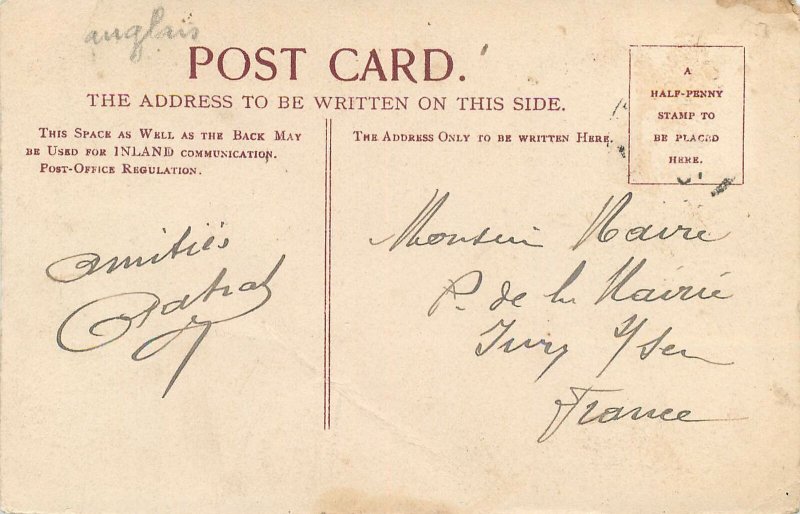 anglais
POST CARD.
THE ADDRESS TO BE WRITTEN ON THIS SIDE.
THIS SPACE AS WELL AS THE BACK MAY
BE USED FOR INLAND COMMUNICATION.
POST-OFFICE REGULATION.
THE ADDRESS ONLY TO BE WRITTEN HERE.
A
HALF-PENNY
STAMP TO
BE PLACED
HERE.
amitiés
Monsieur
P. de la Mairie
Ivry s/Sen
France